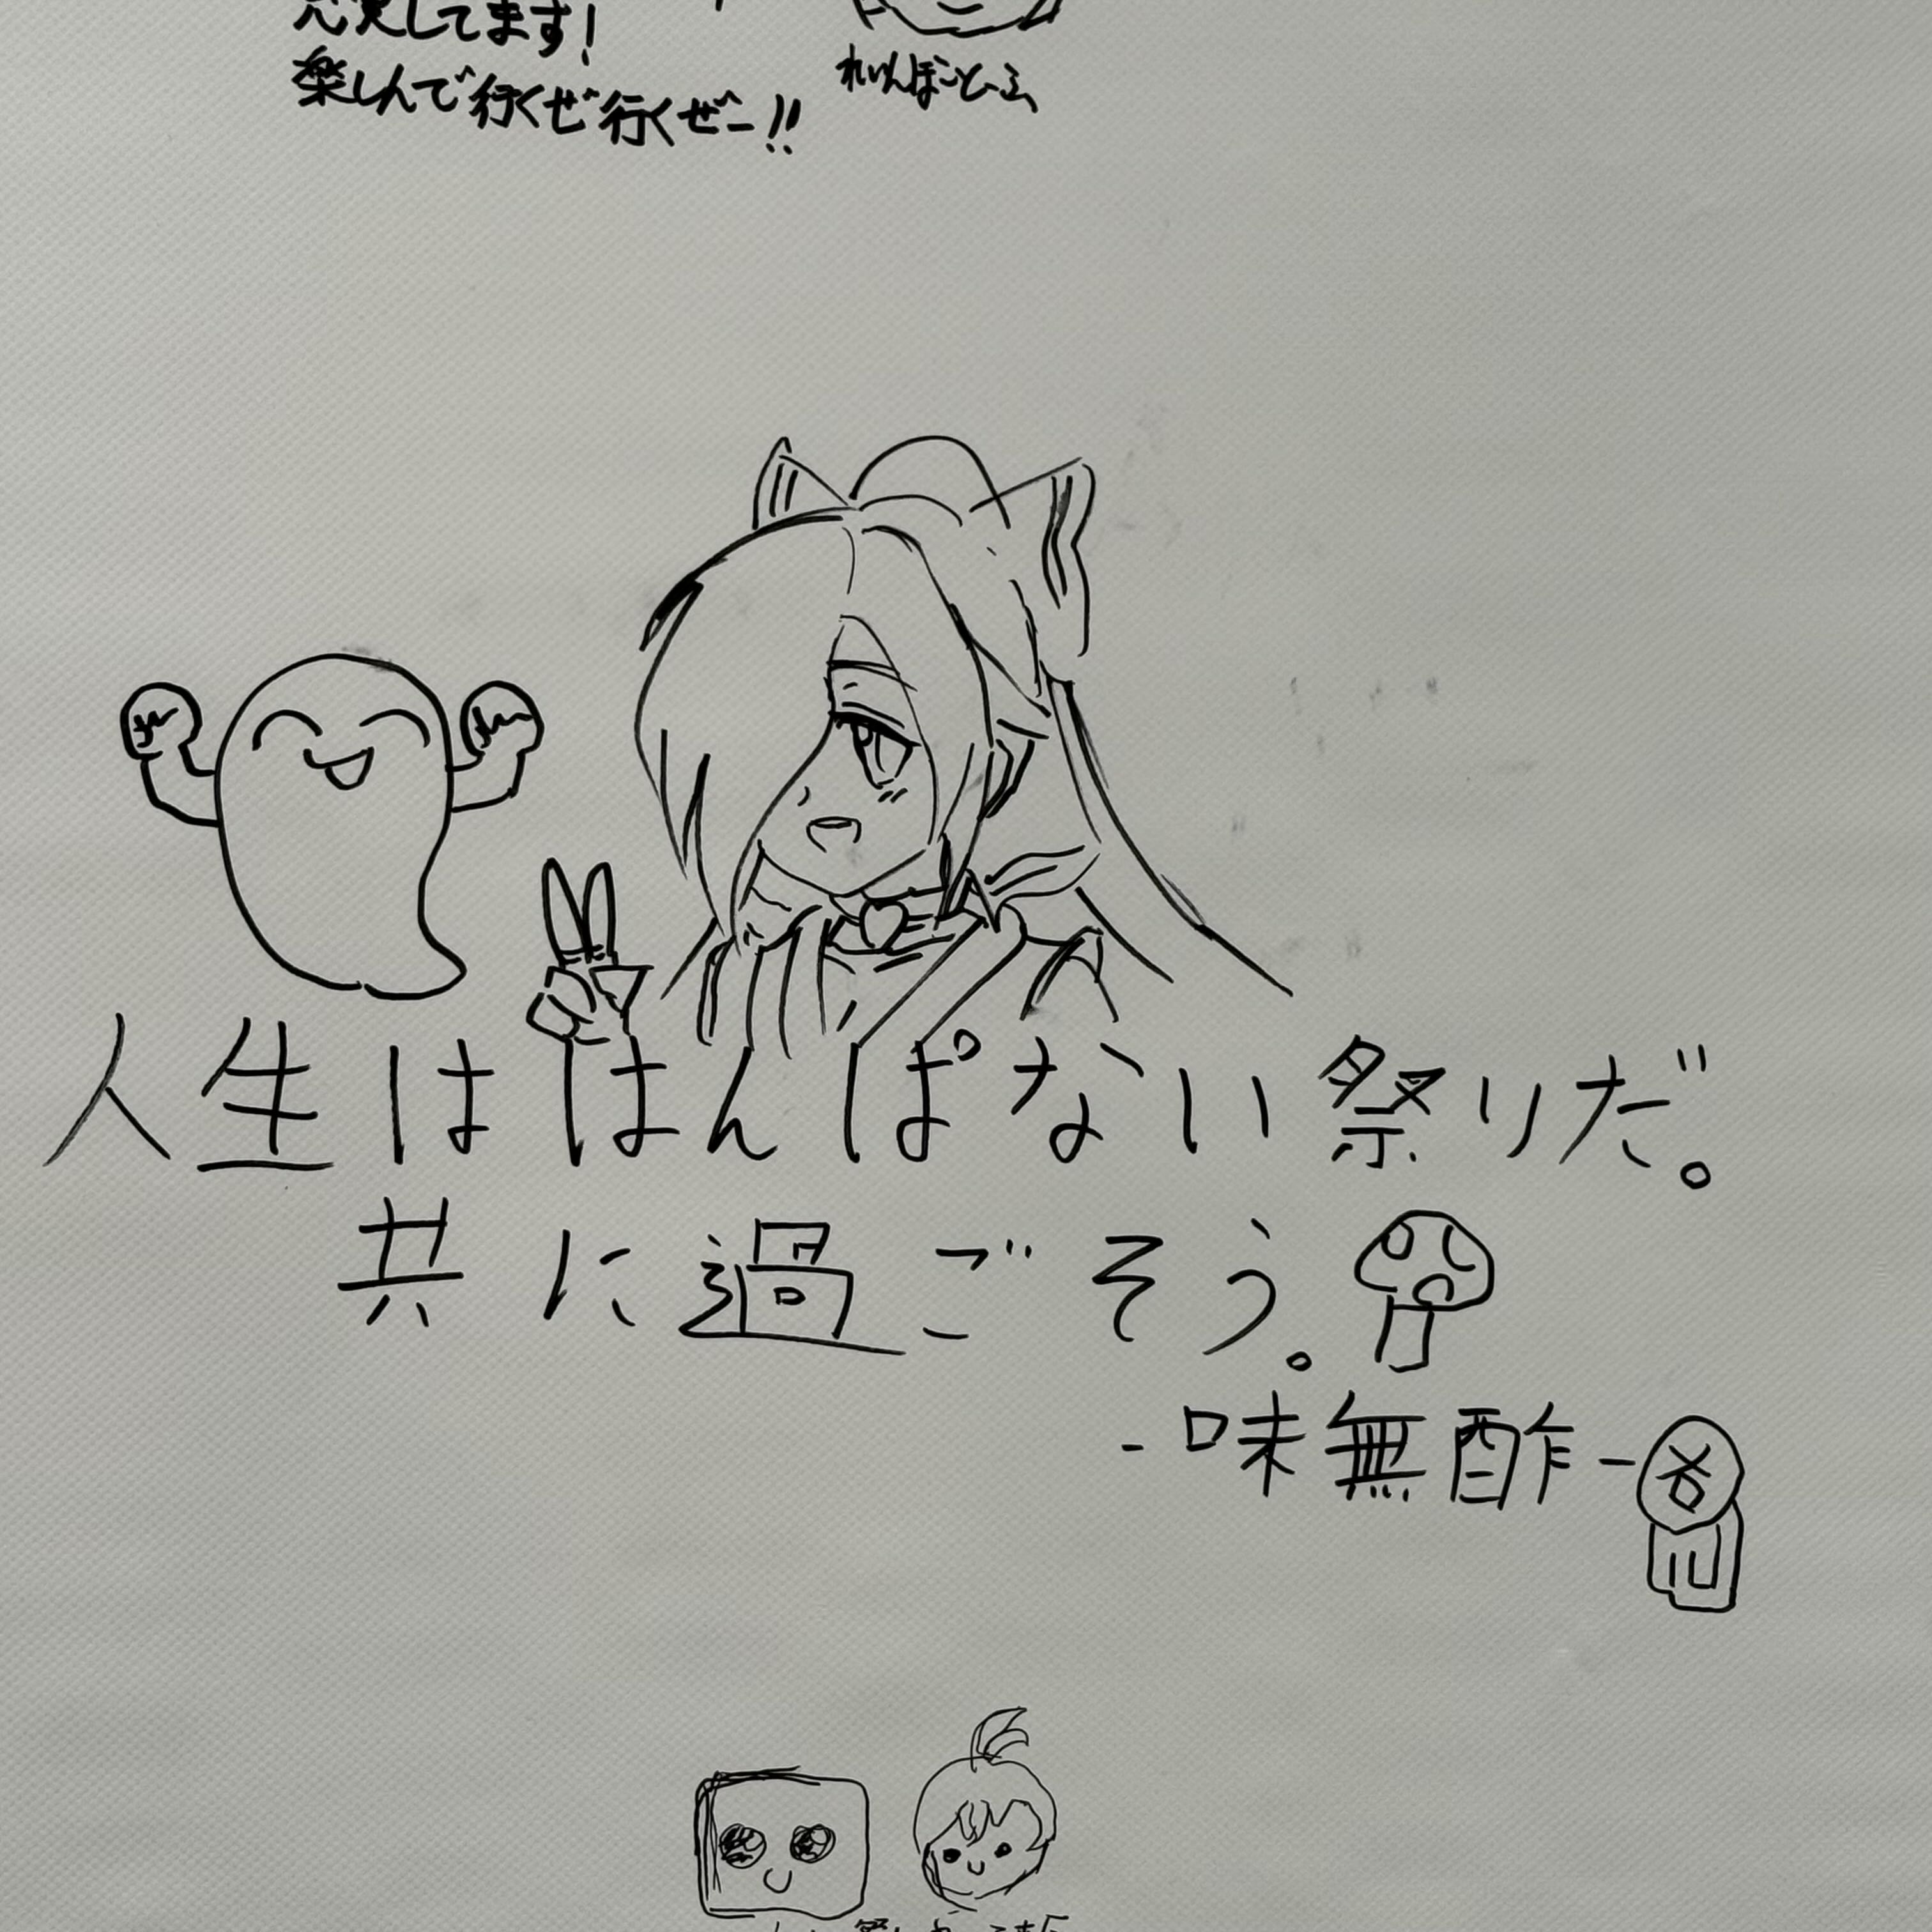 してます!
楽しんで行くぜ行くぜー!!
れいんぼーとーふ
人生ははんぱない祭りだ。
共に過ごそう。
-味無酢-